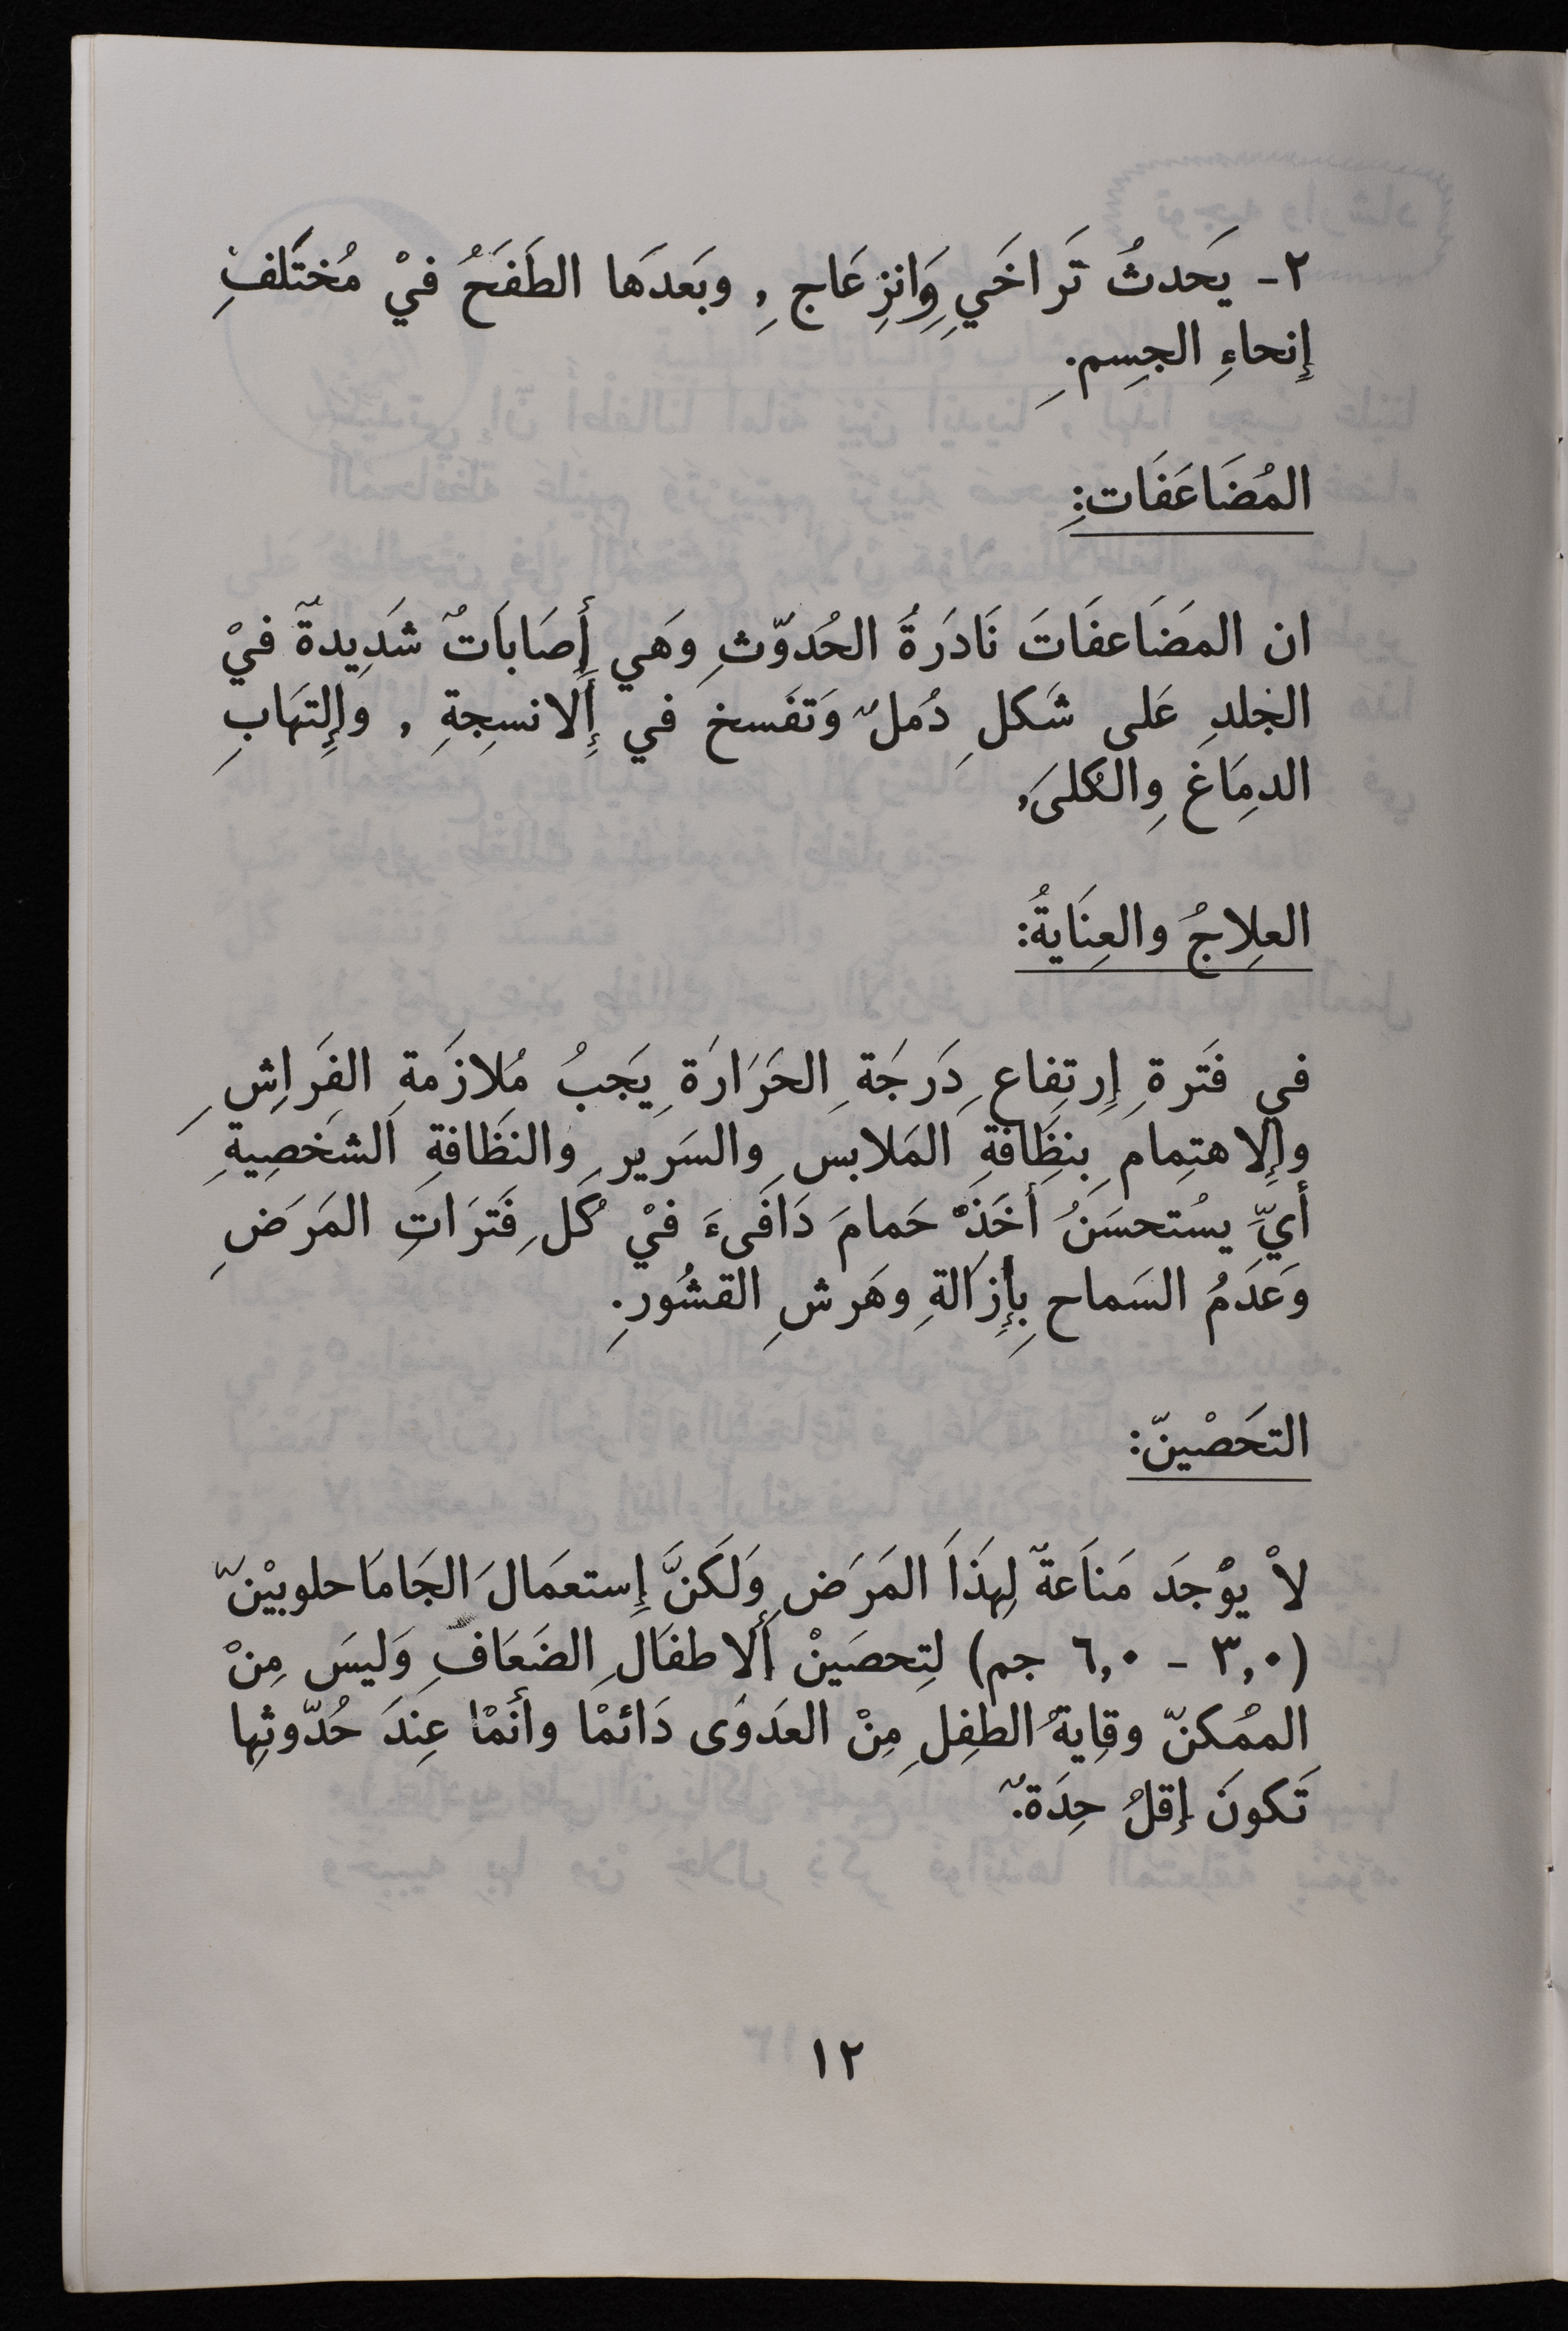 ٢- يَحدثُ تَراخَيِ وَانزِعَاجِ , وبَعدَها الطَفَحُ فيْ مُختَلفِ
إِنحاءِ الجِسمِ.
المُضَاعَفَاتِ:
ان المضَاعفَاتَ نَادَرةُ الحُدوّثِ وَهَي أِصَابَاتٌ شَدِيدةٌ فيْ
الجٰلدِ عَلى شَكلِ دُملٌ وَتفَسخَ في إِلانسِجةِ , وإِلتهَابِ
الدمِاَغَ وِالكُلىَ,
العلِاجُ والعِنَايةُ:
في فَترةِ إِرتفِاعِ دَرجَةِ الحَرَارَةِ يَجبُ مُلازَمةِ الفِراشِ
وإِلاهتمِامَ بِنظَافةِ المَلابسِ والسَريرِ والنظَافةِ الشَخصِيةِ
أيِّ يسُتحسَنُ أخَذَْ حَمامَ دَافَىءَ فيْ كُلِ فَترَاتِ المَرَضِ
وَعَدَمُ السَماحِ بِإِزالَةِ وهَرشِ القشُورِ.
التحَصْينّ:
لاْ يوْجَد مَناَعةٌ لِهَذَاَ المَرَضِ وَلَكَنَّ إِستعَمَالَ الجَامَاحلوبيْنّ
(٣,٠ - ٦,٠ جم) لتِحصَينْ أَلاطفَالِ الضَعَافِ وَليسَ مِنْ
الممُكنّ وقِايةُ الطفِلِ مِنْ العدَوَى دَائمْا وأنَمْا عِندَ حُدّوثهِا
تَكونَ إقلُ حِدَةٌ.
١٢